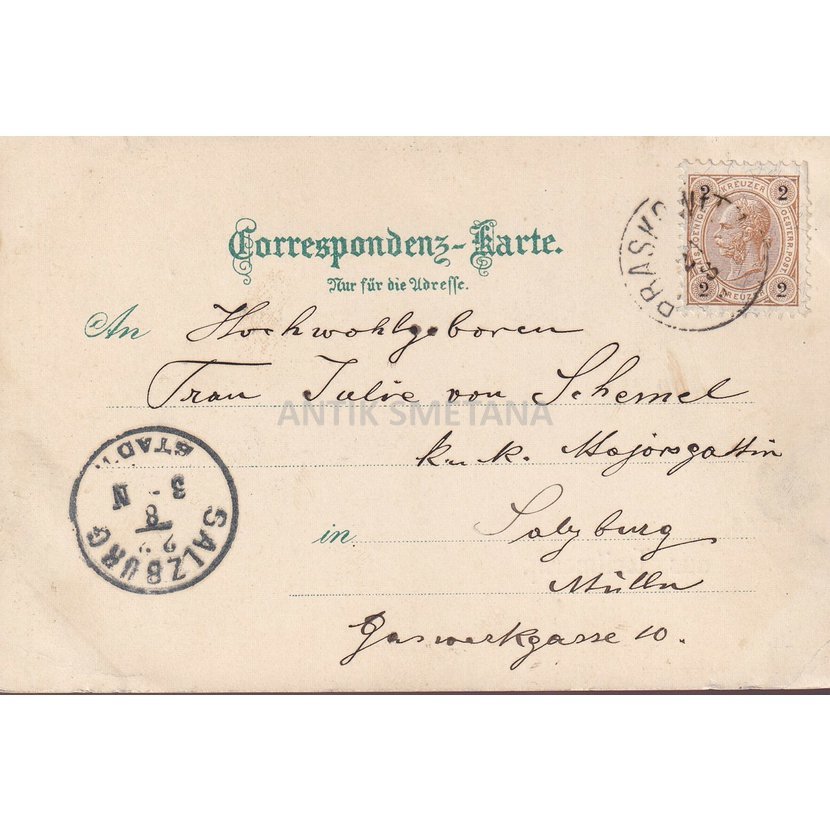 Correspondenz-Karte.
Nur für die Adresse.
An Hochwohlgeboren
Frau Julie von Schemel
ANTIK SMETANA
k. u. k. Majorsgattin
in Salzburg
Mülln
Gaswerkgasse 10.
2 KREUZER 2
OESTERR. POST
2 KREUZER 2
SALZBURG
STADT
8
3 - N